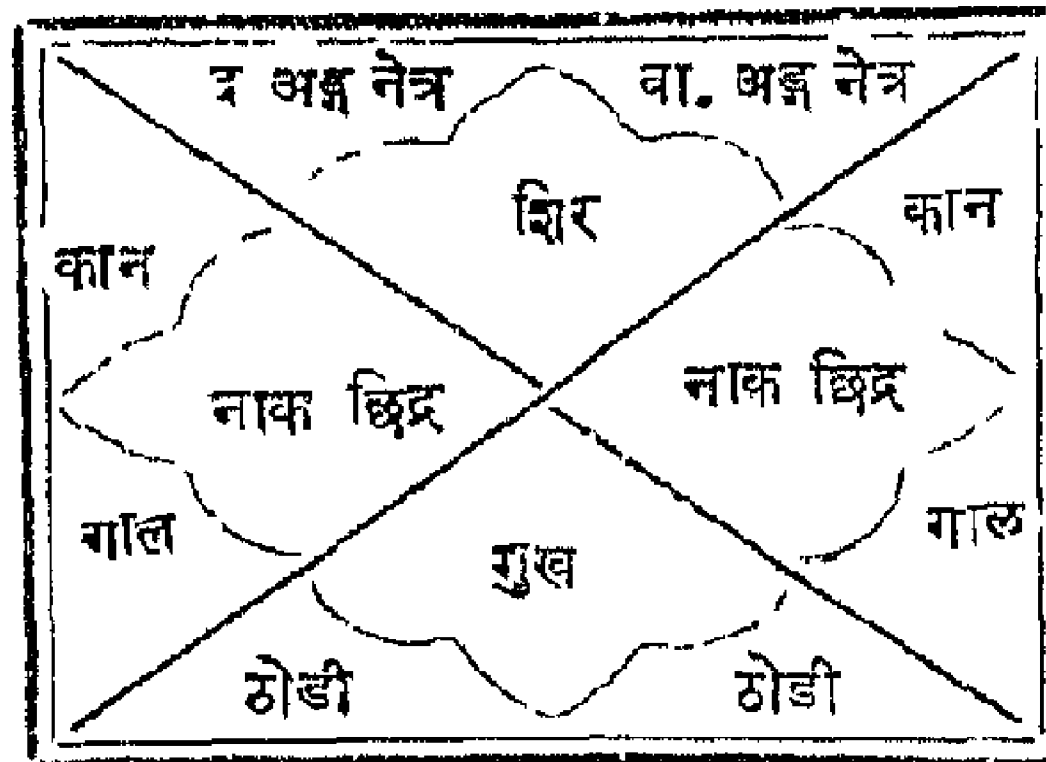 द अङ्ग नेत्र वा. अङ्ग नेत्र
शिर
कान कान
नाक छिद्र नाक छिद्र
गाल गाल
मुख
ठोडी ठोडी